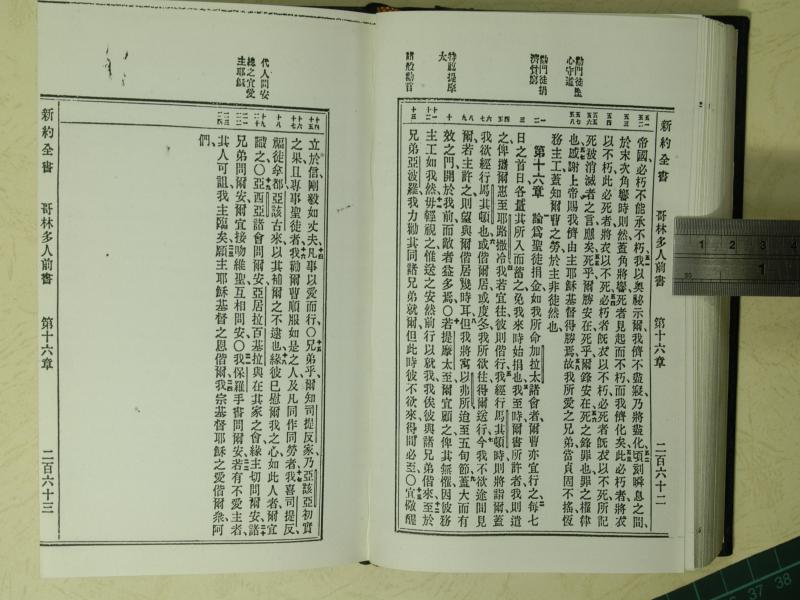 新約全書 哥林多人前書 第十六章 二百六十二
勸門徒堅
心守道
勸門徒捐
濟貧窮
特薦提摩
太
諸般勸言
帝國必朽不能承不朽我以奧秘示爾我儕不盡寢乃將盡化頃刻瞬息之間
於末次角響時則然蓋角將響死者見起而不朽而我儕化矣此必朽者將衣
以不朽此必死者將衣以不死必朽者旣衣以不朽必死者旣衣以不死所記
死被消滅者之言應矣死乎爾勝安在死乎爾鋒安在死之鋒罪也罪之權律
也感謝上帝賜我儕由主耶穌基督得勝焉故我所愛之兄弟當貞固不搖恆
務主工蓋知爾曹之勞於主非徒然也
第十六章 論爲聖徒捐金如我所命加拉太諸會者爾曹亦宜行之每七
日之首日各置其所入而蓄之免我來時始捐也我至時爾書所許者我則遣
之俾攜爾惠至耶路撒冷我若宜往彼則偕行我經行馬其頓時則將詣爾蓋
我欲經行馬其頓也或偕爾居或度冬我所欲往得爾送行今我不欲途間見
爾若主許之則望與爾偕居幾時耳但我將寓以弗所迨至五旬節蓋大而有
效之門開於我前而敵者益多焉〇若提摩太至爾宜顧之俾其無懼因彼務
主工如我然毋輕視之惟送之安然前行以就我我俟彼與諸兄弟偕來至於
兄弟亞波羅我力勸其同諸兄弟就爾但此時彼不欲來得間必至〇宜儆醒
代人問安
總之宜愛
主耶穌
立於信剛毅如丈夫凡事以愛而行〇兄弟乎爾知司提反家乃亞該亞初實
之果且專事聖徒者我勸爾曹順服如是之人及凡同作同勞者我喜司提反
福徒拿都亞該古來以其補爾之不逮也緣彼已慰爾我之心如此人者爾宜
識之〇亞西亞諸會問爾安亞居拉百基拉與在其家之會緣主切問爾安諸
兄弟問爾安爾宜接吻維聖互相問安〇我保羅手書問爾安若有不愛主者
其人可詛我主臨矣願主耶穌基督之恩偕爾我宗基督耶穌之愛偕爾衆阿
們
新約全書 哥林多人前書 第十六章 二百六十三